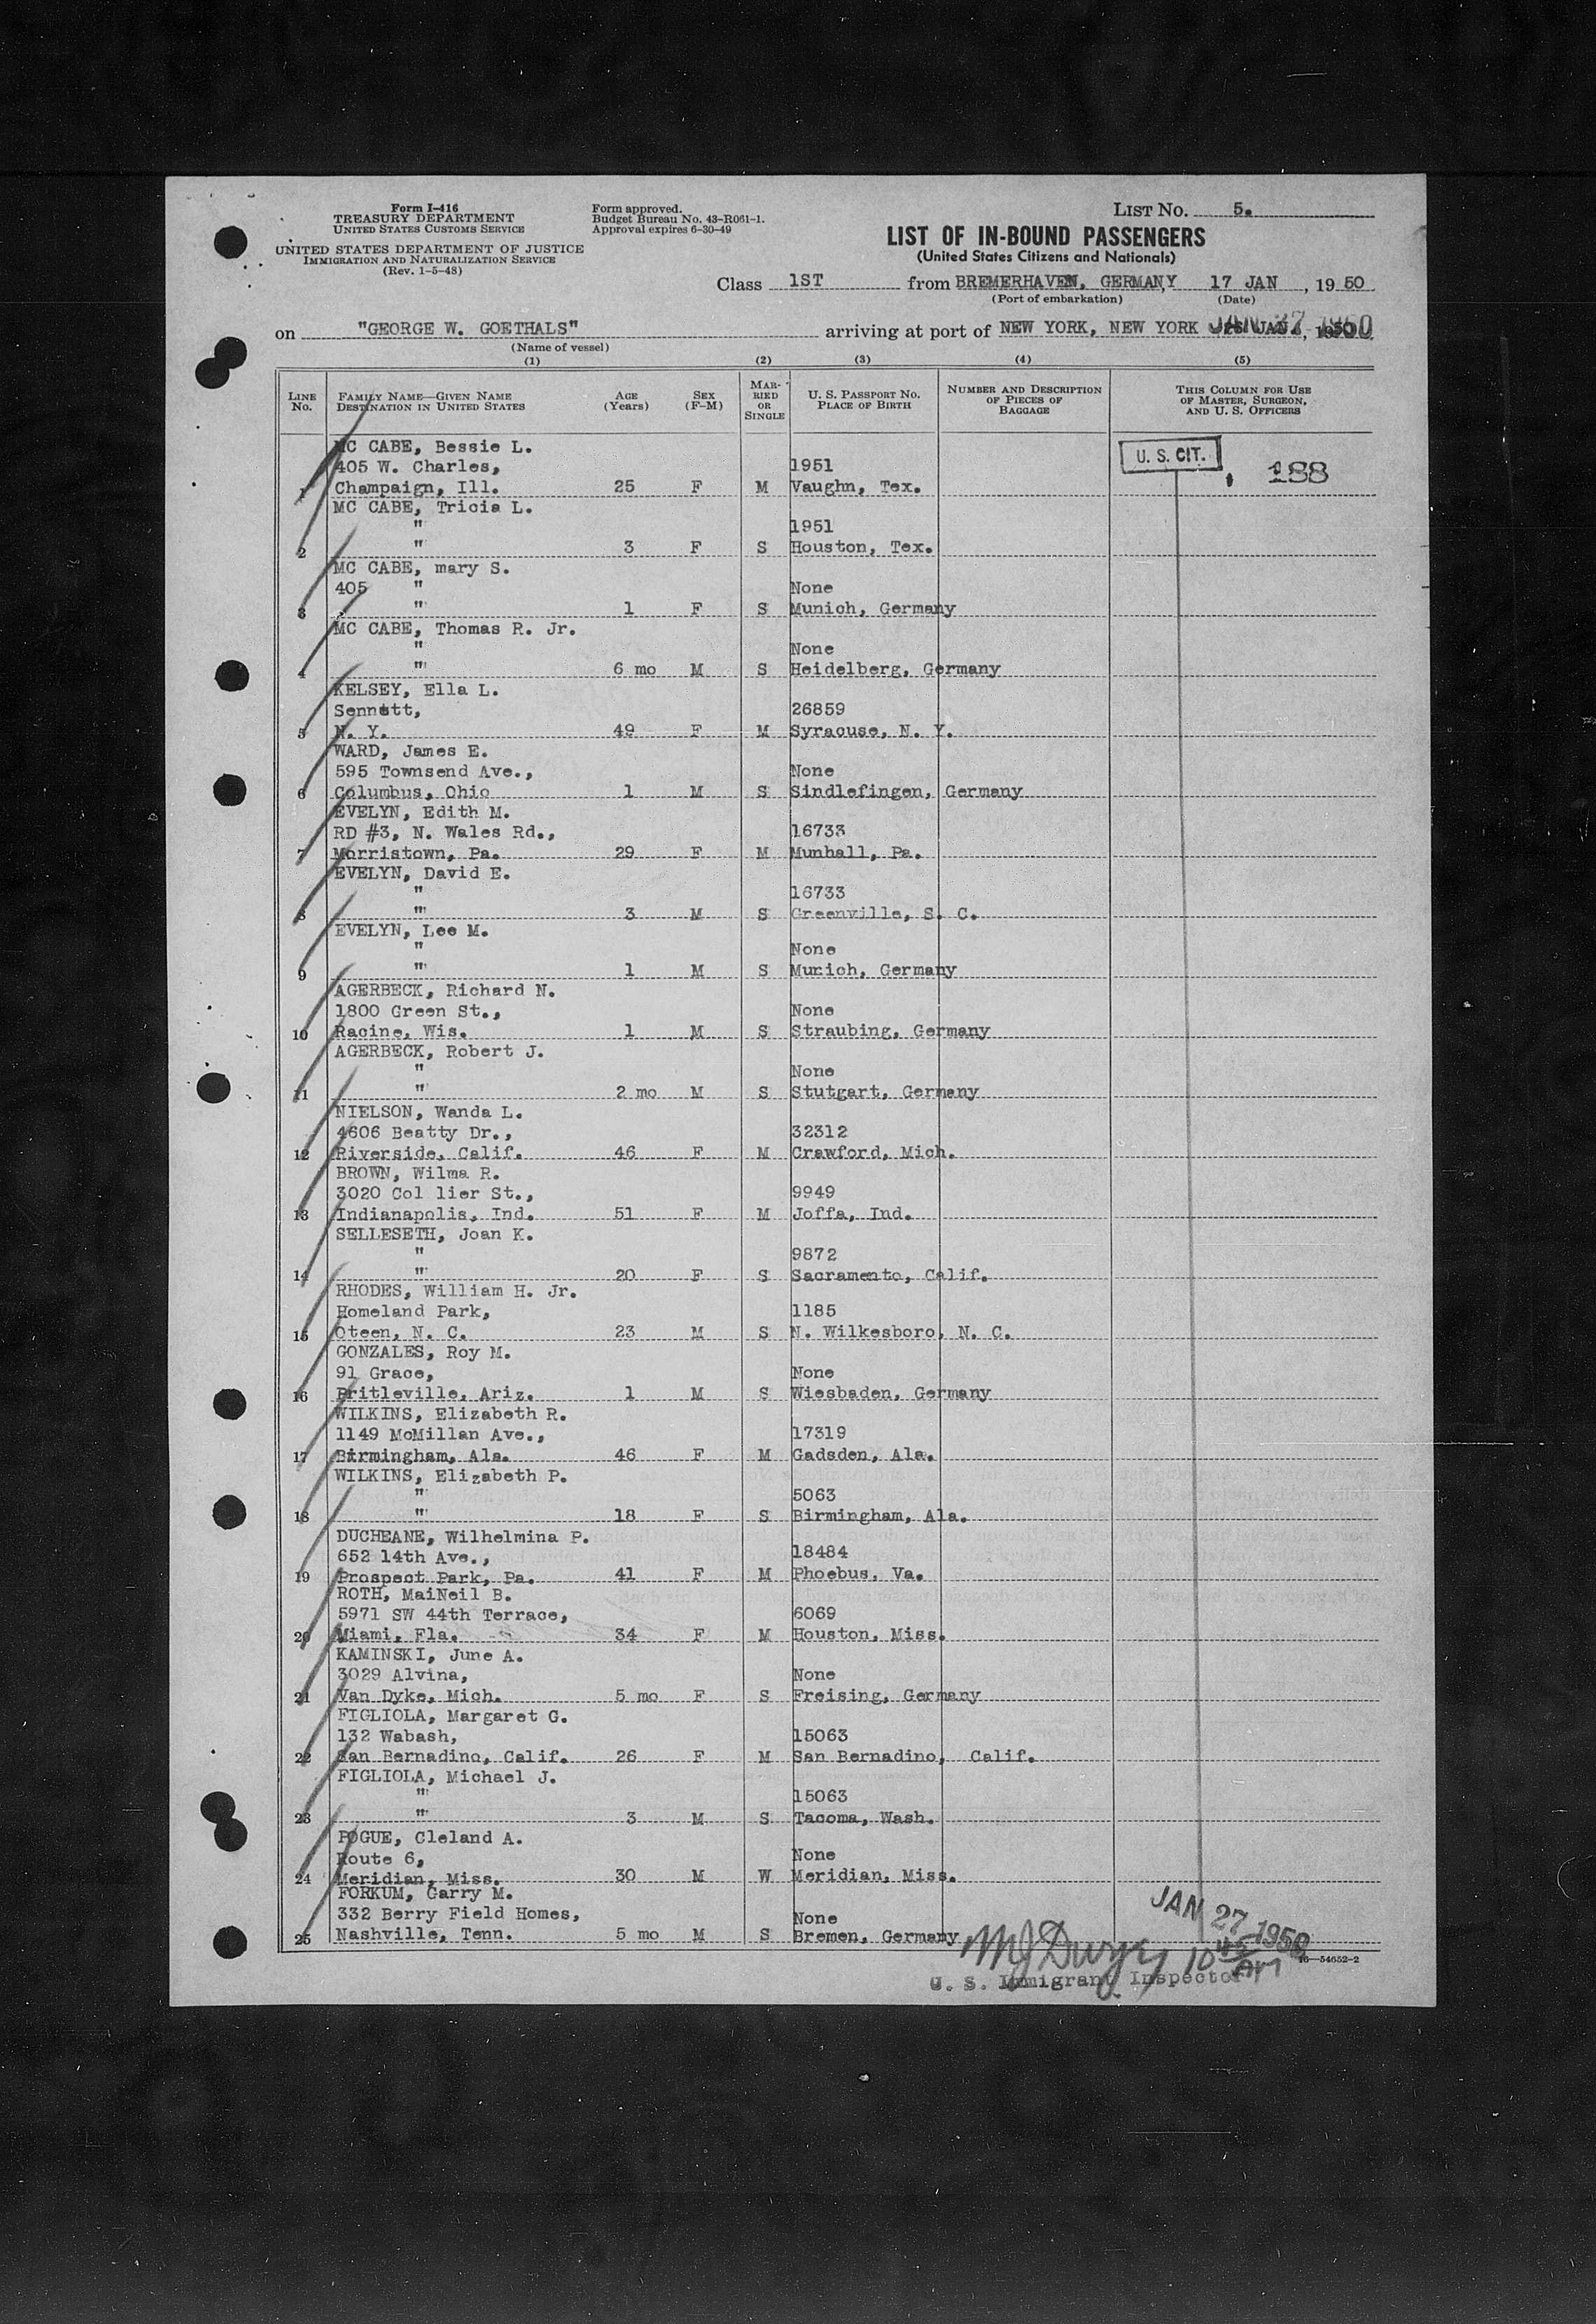 Form I-416
TREASURY DEPARTMENT
UNITED STATES CUSTOMS SERVICE
UNITED STATES DEPARTMENT OF JUSTICE
IMMIGRATION AND NATURALIZATION SERVICE
(Rev. 1-5-48)
Form approved.
Budget Bureau No. 43-R061-1.
Approval expires 6-30-49
LIST No. 5.
LIST OF IN-BOUND PASSENGERS
(United States Citizens and Nationals)
Class 1ST from BREMERHAVEN, GERMANY, 17 JAN, 1950
(Port of embarkation) (Date)
on "GEORGE W. GOETHALS" arriving at port of NEW YORK, NEW YORK JAN 27 1950
(Name of vessel)
(1) (2) (3) (4) (5)
LINE No. FAMILY NAME—GIVEN NAME DESTINATION IN UNITED STATES AGE (Years) SEX (F-M) MARRIED OR SINGLE U. S. PASSPORT NO. PLACE OF BIRTH NUMBER AND DESCRIPTION OF PIECES OF BAGGAGE THIS COLUMN FOR USE OF MASTER, SURGEON, AND U. S. OFFICERS
MC CABE, Bessie L.
405 W. Charles, 1951 U. S. CIT. 188
1 Champaign, Ill. 25 F M Vaughn, Tex.
MC CABE, Tricia L.
" 1951
2 " 3 F S Houston, Tex.
MC CABE, mary S.
405 " None
3 " 1 F S Munich, Germany
MC CABE, Thomas R. Jr.
" None
4 " 6 mo M S Heidelberg, Germany
KELSEY, Ella L.
Sennett, 26859
5 N. Y. 49 F M Syracuse, N. Y.
WARD, James E.
595 Townsend Ave., None
6 Columbus, Ohio 1 M S Sindlefingen, Germany
EVELYN, Edith M.
RD #3, N. Wales Rd., 16733
7 Morristown, Pa. 29 F M Munhall, Pa.
EVELYN, David E.
" 16733
8 " 3 M S Greenville, S. C.
EVELYN, Lee M.
" None
9 " 1 M S Munich, Germany
AGERBECK, Richard N.
1800 Green St., None
10 Racine, Wis. 1 M S Straubing, Germany
AGERBECK, Robert J.
" None
11 " 2 mo M S Stutgart, Germany
NIELSON, Wanda L.
4606 Beatty Dr., 32312
12 Riverside, Calif. 46 F M Crawford, Mich.
BROWN, Wilma R.
3020 Col lier St., 9949
13 Indianapolis, Ind. 51 F M Joffa, Ind.
SELLESETH, Joan K.
" 9872
14 " 20 F S Sacramento, Calif.
RHODES, William H. Jr.
Homeland Park, 1185
15 Oteen, N. C. 23 M S N. Wilkesboro, N. C.
GONZALES, Roy M.
91 Grace, None
16 Pritleville, Ariz. 1 M S Wiesbaden, Germany
WILKINS, Elizabeth R.
1149 McMillan Ave., 17319
17 Birmingham, Ala. 46 F M Gadsden, Ala.
WILKINS, Elizabeth P.
" 5063
18 " 18 F S Birmingham, Ala.
DUCHEANE, Wilhelmina P.
652 14th Ave., 18484
19 Prospect Park, Pa. 41 F M Phoebus, Va.
ROTH, MaiNeil B.
5971 SW 44th Terrace, 6069
20 Miami, Fla. 34 F M Houston, Miss.
KAMINSKI, June A.
3029 Alvina, None
21 Van Dyke, Mich. 5 mo F S Freising, Germany
FIGLIOLA, Margaret G.
132 Wabash, 15063
22 San Bernadino, Calif. 26 F M San Bernadino, Calif.
FIGLIOLA, Michael J.
" 15063
23 " 3 M S Tacoma, Wash.
POGUE, Cleland A.
Route 6, None
24 Meridian, Miss. 30 M W Meridian, Miss.
FORKUM, Garry M.
332 Berry Field Homes, None
25 Nashville, Tenn. 5 mo M S Bremen, Germany
JAN 27 1950
10 45 AM
16—54652-2
U. S. Immigrant Inspector